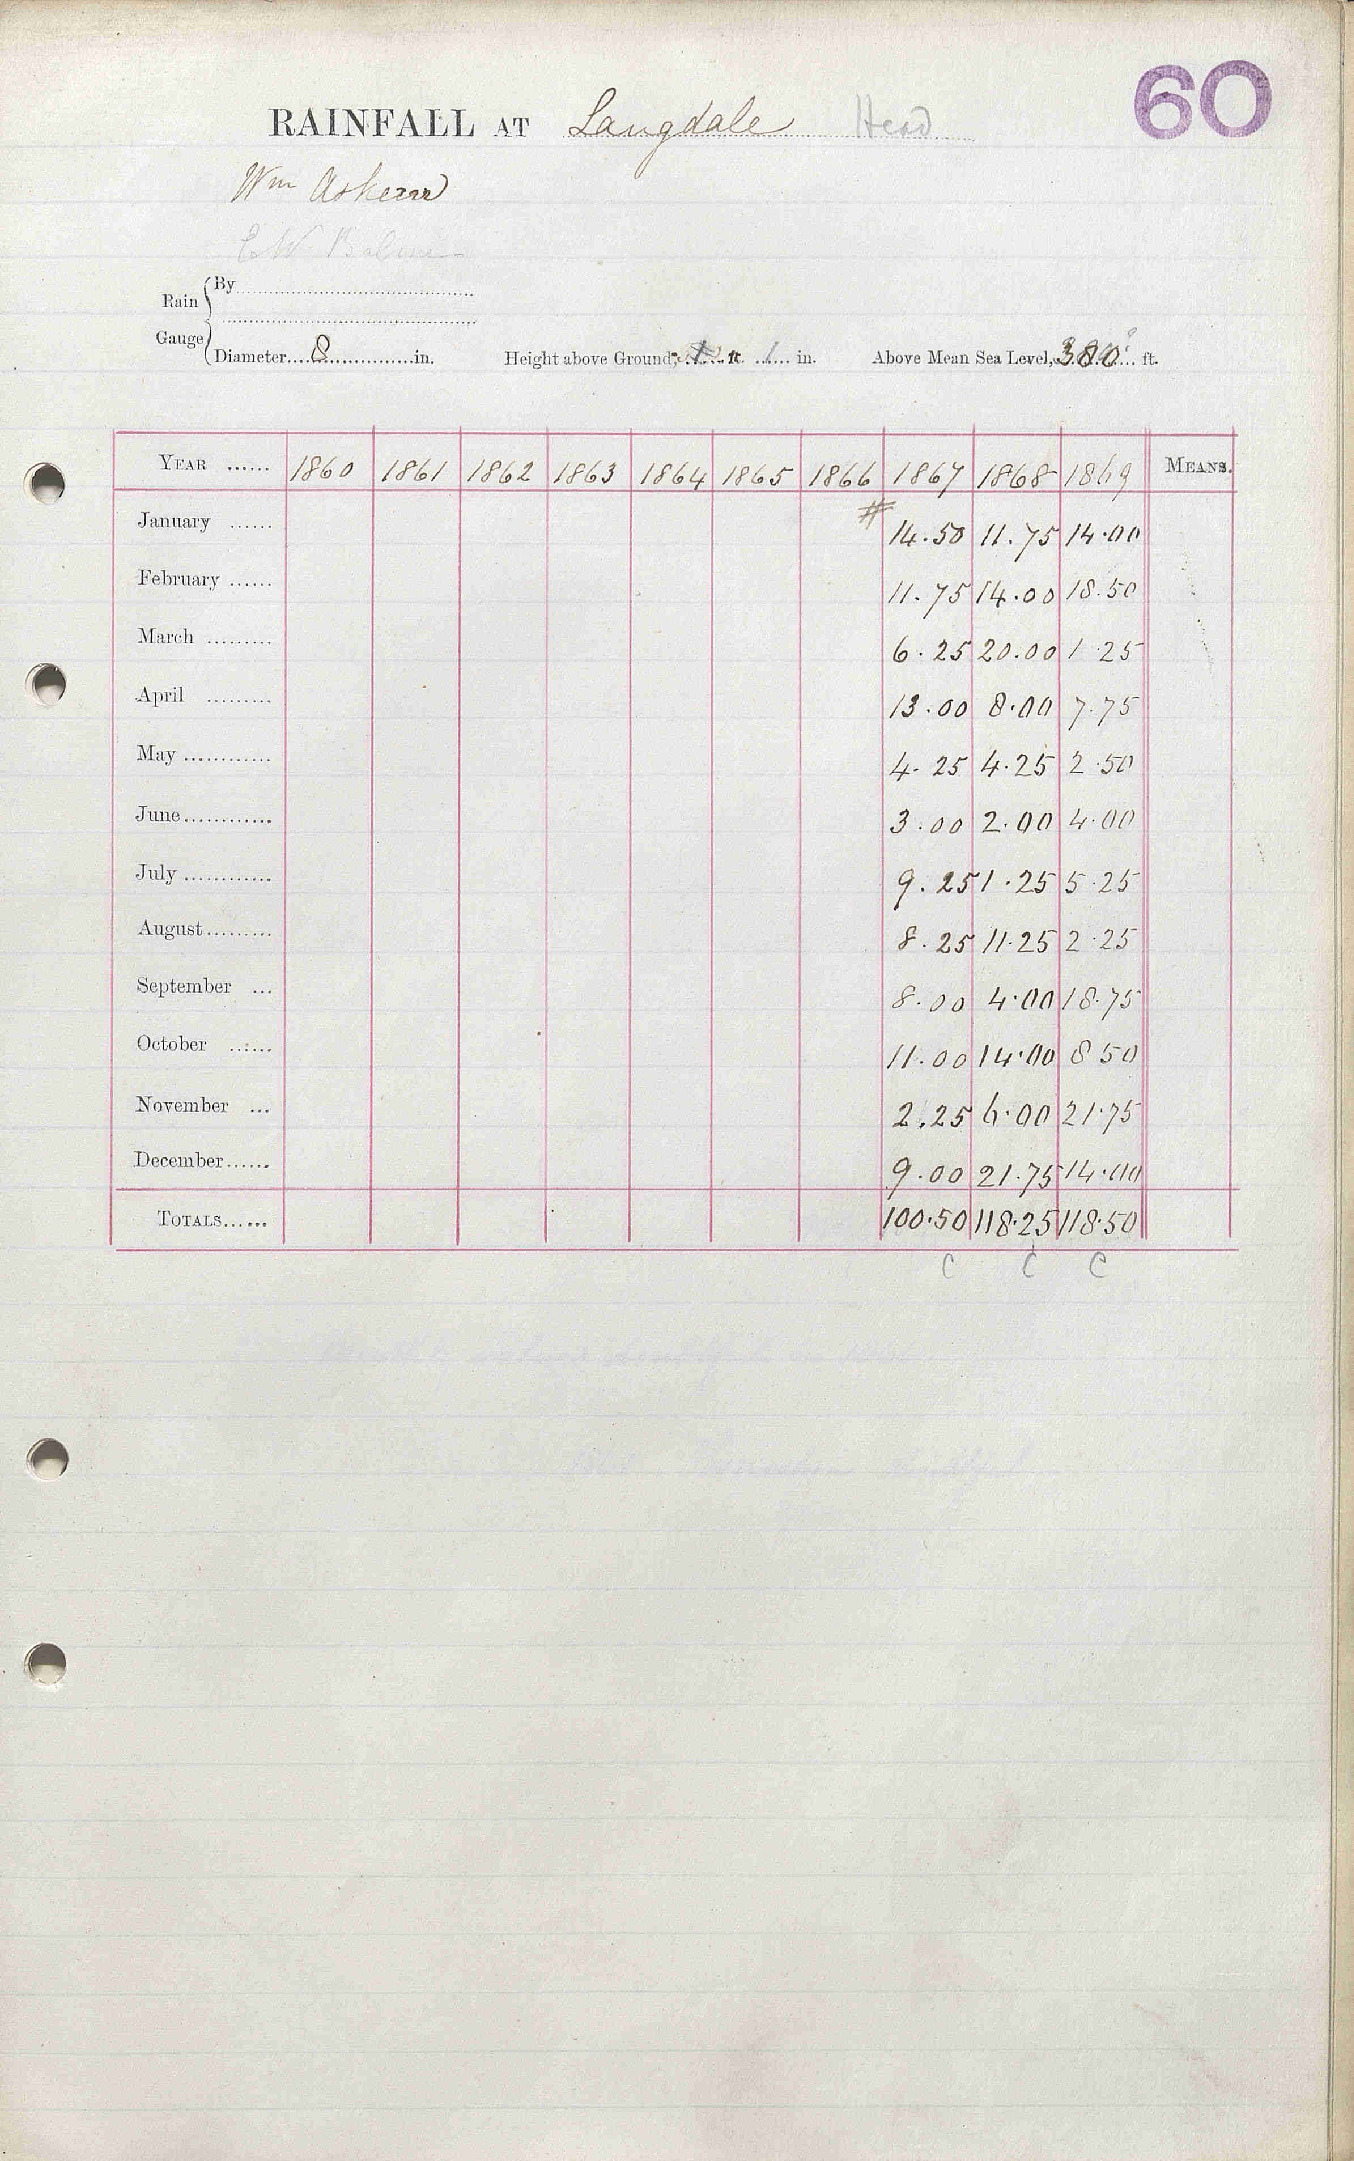 60
RAINFALL AT Langdale Head
Wm
E W
Rain Gauge
By
Diameter 8 in. Height above Ground, ft. 1 in. Above Mean Sea Level, 380 ft.
YEAR 1860 1861 1862 1863 1864 1865 1866 1867 1868 1869 MEANS.
January # 14.50 11.75 14.00
February 11.75 14.00 18.50
March 6.25 20.00 1.25
April 13.00 8.00 7.75
May 4.25 4.25 2.50
June 3.00 2.00 4.00
July 9.25 1.25 5.25
August 8.25 11.25 2.25
September 8.00 4.00 18.75
October 11.00 14.00 8.50
November 2.25 6.00 21.75
December 9.00 21.75 14.00
TOTALS 100.50 118.25 118.50
C C C